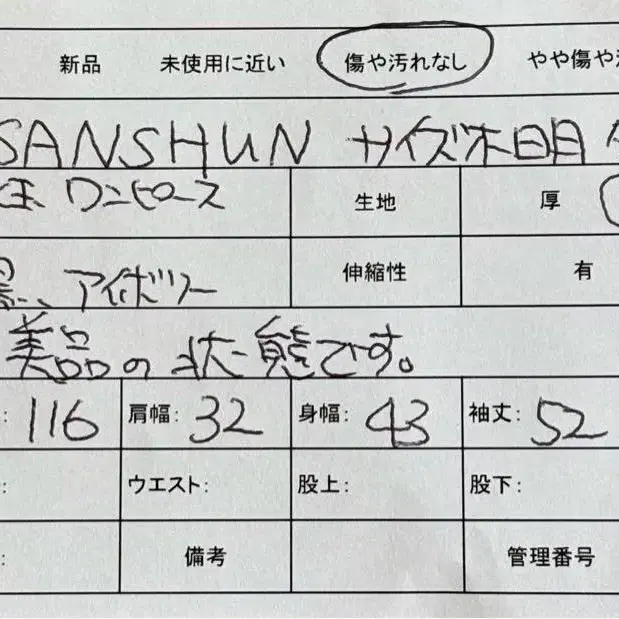 新品 未使用に近い 傷や汚れなし やや傷や汚
SANSHUN サイズ不明
ワンピース 生地 厚
黒、アイボリー 伸縮性 有
美品の状態です。
: 116 肩幅: 32 身幅: 43 袖丈: 52
: ウエスト: 股上: 股下:
: 備考 管理番号